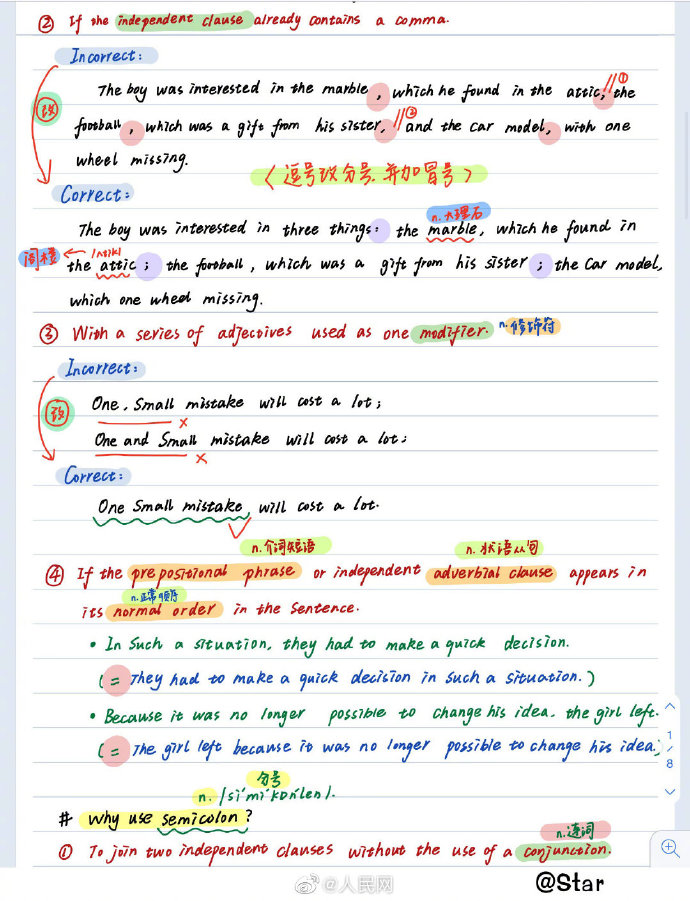 ② If the independent clause already contains a comma.
Incorrect:
The boy was interested in the marble, which he found in the attic, the ①
改
football, which was a gift from his sister, ② and the car model, with one
wheel missing.
〈逗号改分号,并加冒号〉
Correct:
n.大理石
The boy was interested in three things: the marble, which he found in
阁楼
the attic; the football, which was a gift from his sister; the car model,
which one wheel missing.
③ With a series of adjectives used as one modifier. n.修饰符
Incorrect:
One, Small mistake will cost a lot;
改
One and Small mistake will cost a lot;
Correct:
One Small mistake, will cost a lot.
n.介词短语 n.状语从句
④ If the prepositional phrase or independent adverbial clause appears in
n.正常顺序
its normal order in the sentence.
• In Such a situation, they had to make a quick decision.
(= They had to make a quick decision in such a situation.)
• Because it was no longer possible to change his idea, the girl left.
(= The girl left because it was no longer possible to change his idea.)
1
/
8
分号
n. /ˌsiˈmiˈkɒnˈlen/.
# Why use semicolon?
n.连词
① To join two independent clauses without the use of a conjunction.
@人民网
@Star